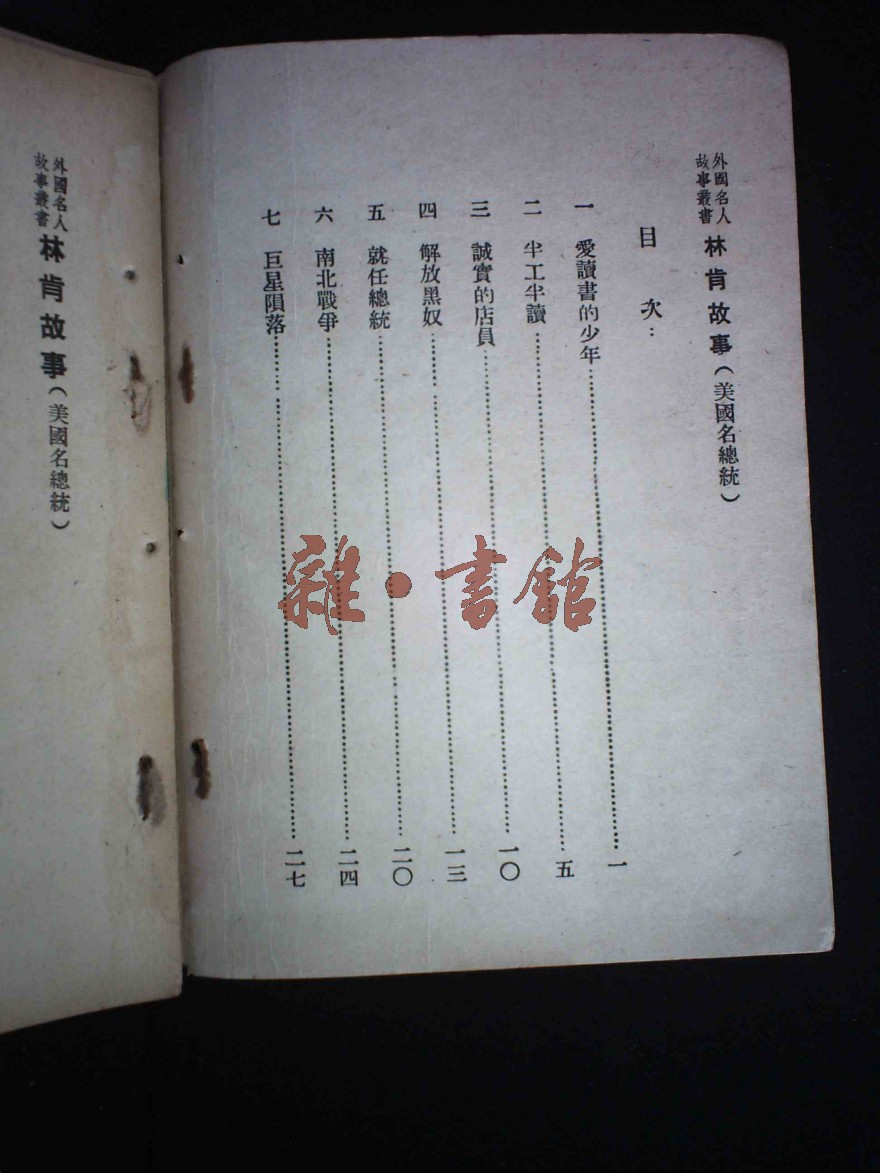 外國名人
故事叢書
林肯故事(美國名總統)
目次：
一 愛讀書的少年……一
二 半工半讀……五
三 誠實的店員……一〇
四 解放黑奴……一三
五 就任總統……二〇
六 南北戰爭……二四
七 巨星隕落……二七
外國名人
故事叢書
林肯故事(美國名總統)
雜·書館